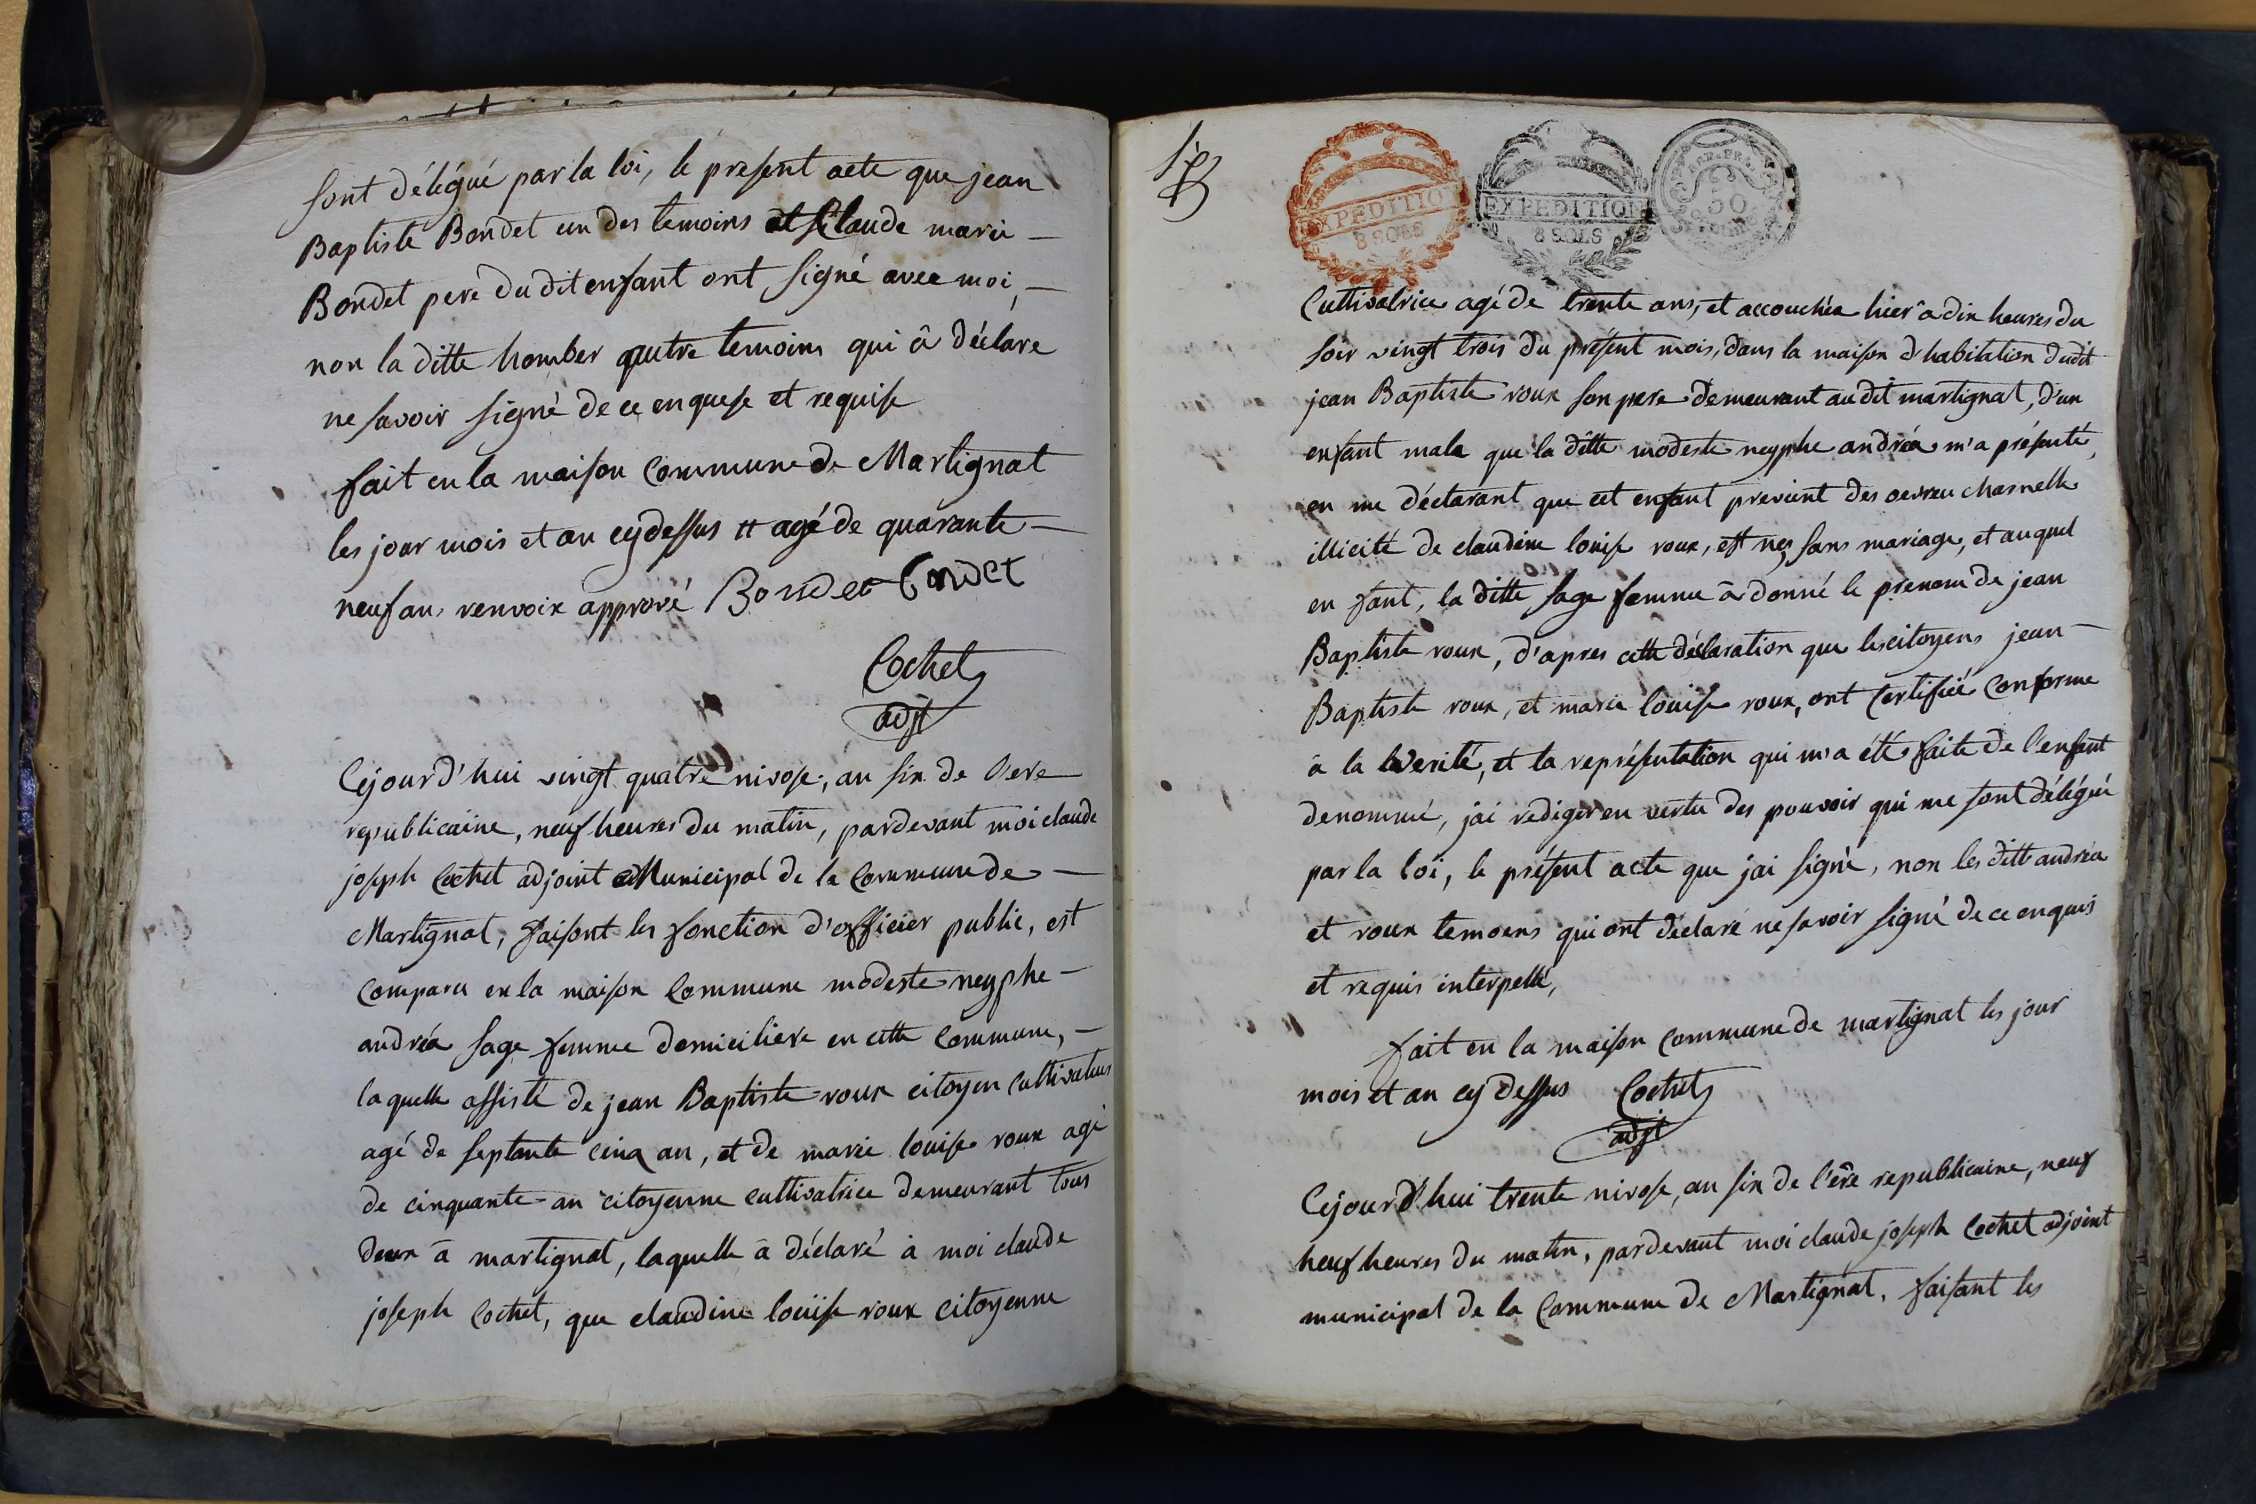 sont délégué par la loi, le present acte que jean
Baptiste Bondet un des temoins et Claude marie —
Bondet pere du dit enfant ont signé avec moi, —
non la ditte homber autre temoins qui â déclare
ne savoir signé de ce enquese et requise
fait en la maison Commune de Martignat
les jour mois et an cy dessus # agé de quarante —
neuf an, renvoix apprové Bondet Bondet
Cochet
adjt
Cejourd'hui vingt quatre nivose, an six de l'ere
republicaine, neuf heures du matin, pardevant moi claude
joseph Cochet adjoint Municipal de la Commune de —
Martignat, faisont les fonction d'officier public, est
comparu en la maison Commune modeste neyphe —
andréa sage femme domiciliere en cette Commune, —
laquelle assisté de jean Baptiste roux citoyen cultivateur
agé de septante cinq an, et de marie louise roux agé
de cinquante an citoyenne cultivatrice demeurant tous
deux â martignat, laquelle â déclaré à moi claude
joseph Cochet, que claudine louise roux citoyenne
EXPEDITION
8 SOLS
EXPEDITION
8 SOLS
50
Cultivatrice agé de trente ans, et accouchée hier â dix heures du
soir vingt trois du présent mois, dans la maison d'habitation dudit
jean Baptiste roux son pere demeurant au dit martignat, d'un
enfant male que la ditte modeste neyphe andréa m'a présenté,
en me déclarant que cet enfant previent des oevreu charnelle
illicité de claudine louise roux, est nez sans mariage, et auquel
en fant, la ditte sage femme â donné le prenom de jean
Baptiste roux, d'apres cette déclaration que les citoyens jean —
Baptiste roux, et marie louise roux, ont Certifiéé Conforme
â la verité, et la représentation qui m'a été faite de l'enfant
denommé, jai rediger en vertu des pouvoir qui me sont délégué
par la loi, le présent acte que jai signé, non les ditt andréa
et roux temoens qui ont déclaré ne savoir signé de ce enquis
et requis interpellé,
fait en la maison commune de martignat les jour
mois et an cy dessus Cochet
adjt
Cejourd'hui trente nivose, an six de l'ere republicaine, neuf
heuf heures du matin, pardevant moi claude joseph Cochet adjoint
municipal de la Commune de Martignat, faisant les